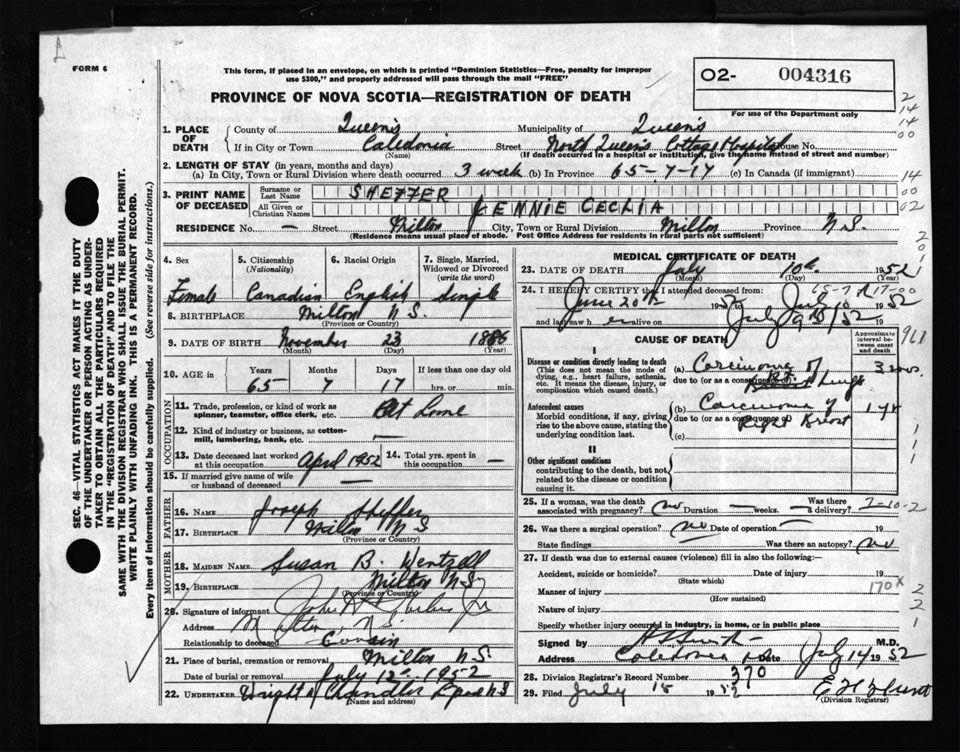 FORM 6
This form, if placed in an envelope, on which is printed "Dominion Statistics—Free, penalty for improper
use $300," and properly addressed will pass through the mail "FREE"
O2- 004316
For use of the Department only
PROVINCE OF NOVA SCOTIA—REGISTRATION OF DEATH
1. PLACE OF DEATH
County of Queen's Municipality of Queen's
If in City or Town Caledonia Street North Queen's Cottage Hospital House No.
(Name) (If death occurred in a hospital or institution, give the name instead of street and number)
2. LENGTH OF STAY (in years, months and days)
(a) In City, Town or Rural Division where death occurred 3 week (b) In Province 65-7-17 (c) In Canada (if immigrant)
3. PRINT NAME OF DECEASED
Surname or Last Name SHEFFER
All Given or Christian Names JENNIE CECLIA
RESIDENCE No. — Street Milton City, Town or Rural Division Milton Province N.S.
(Residence means usual place of abode. Post Office Address for residents in rural parts not sufficient)
4. Sex
Female
5. Citizenship
(Nationality)
Canadian
6. Racial Origin
English
7. Single, Married, Widowed or Divorced
(write the word)
Single
8. BIRTHPLACE Milton N.S.
(Province or Country)
9. DATE OF BIRTH November 23 1886
(Month) (Day) (Year)
10. AGE
Years Months Days If less than one day old
65 7 17 hrs. or min.
OCCUPATION
11. Trade, profession, or kind of work as
spinner, teamster, office clerk, etc. At Home
12. Kind of industry or business, as cotton-
mill, lumbering, bank, etc. —
13. Date deceased last worked
at this occupation April 1952
14. Total yrs. spent in
this occupation —
15. If married give name of wife
or husband of deceased —
FATHER
16. Name Joseph Sheffer
17. Birthplace Milton N S
(Province or Country)
MOTHER
18. MAIDEN NAME Susan B. Wentzell
19. BIRTHPLACE Milton N.S.
(Province or Country)
20. Signature of informant John
Address Milton, N.S.
Relationship to deceased Cousin
21. Place of burial, cremation or removal Milton N.S.
Date of burial or removal July 12th 1952
22. UNDERTAKER Wright Chandler N S
(Name and address)
MEDICAL CERTIFICATE OF DEATH
23. DATE OF DEATH July 10th 1952
(Month) (Day) (Year)
24. I HEREBY CERTIFY that I attended deceased from:
65-7-17-00
June 20th 1952 July 10 1952
and last saw h er alive on July 9th/52 19
CAUSE OF DEATH
Approximate interval between onset and death
I
Disease or condition directly leading to death
(This does not mean the mode of
dying, e.g., heart failure, asthenia,
etc. It means the disease, injury, or
complication which caused death.)
(a) Carcinoma of 3 mos.
due to (or as a consequence of) Lungs
Antecedent causes
Morbid conditions, if any, giving
rise to the above cause, stating the
underlying condition last.
(b) Carcinoma of 1 yr
due to (or as a consequence of) Right Breast
(c)
II
Other significant conditions
contributing to the death, but not
related to the disease or condition
causing it.
25. If a woman, was the death
associated with pregnancy? no Duration — weeks. Was there
a delivery? —
7-10-2
26. Was there a surgical operation? no Date of operation — 19
State findings Was there an autopsy? no
27. If death was due to external causes (violence) fill in also the following:—
Accident, suicide or homicide? Date of injury 19
(State which)
Manner of injury
170X
(How sustained)
Nature of injury
Specify whether injury occurred in industry, in home, or in public place
Signed by M.D.
Address Caledonia NS Date July 14 1952
28. Division Registrar's Record Number 370
29. Filed July 15 1952
(Division Registrar)
SEC. 46—VITAL STATISTICS ACT MAKES IT THE DUTY
OF THE UNDERTAKER OR PERSON ACTING AS UNDER-
TAKER TO OBTAIN ALL THE PARTICULARS REQUIRED
IN THE "REGISTRATION OF DEATH" AND TO FILE THE
SAME WITH THE DIVISION REGISTRAR WHO SHALL ISSUE THE BURIAL PERMIT.
WRITE PLAINLY WITH UNFADING INK. THIS IS A PERMANENT RECORD.
Every item of information should be carefully supplied. (See reverse side for instructions.)